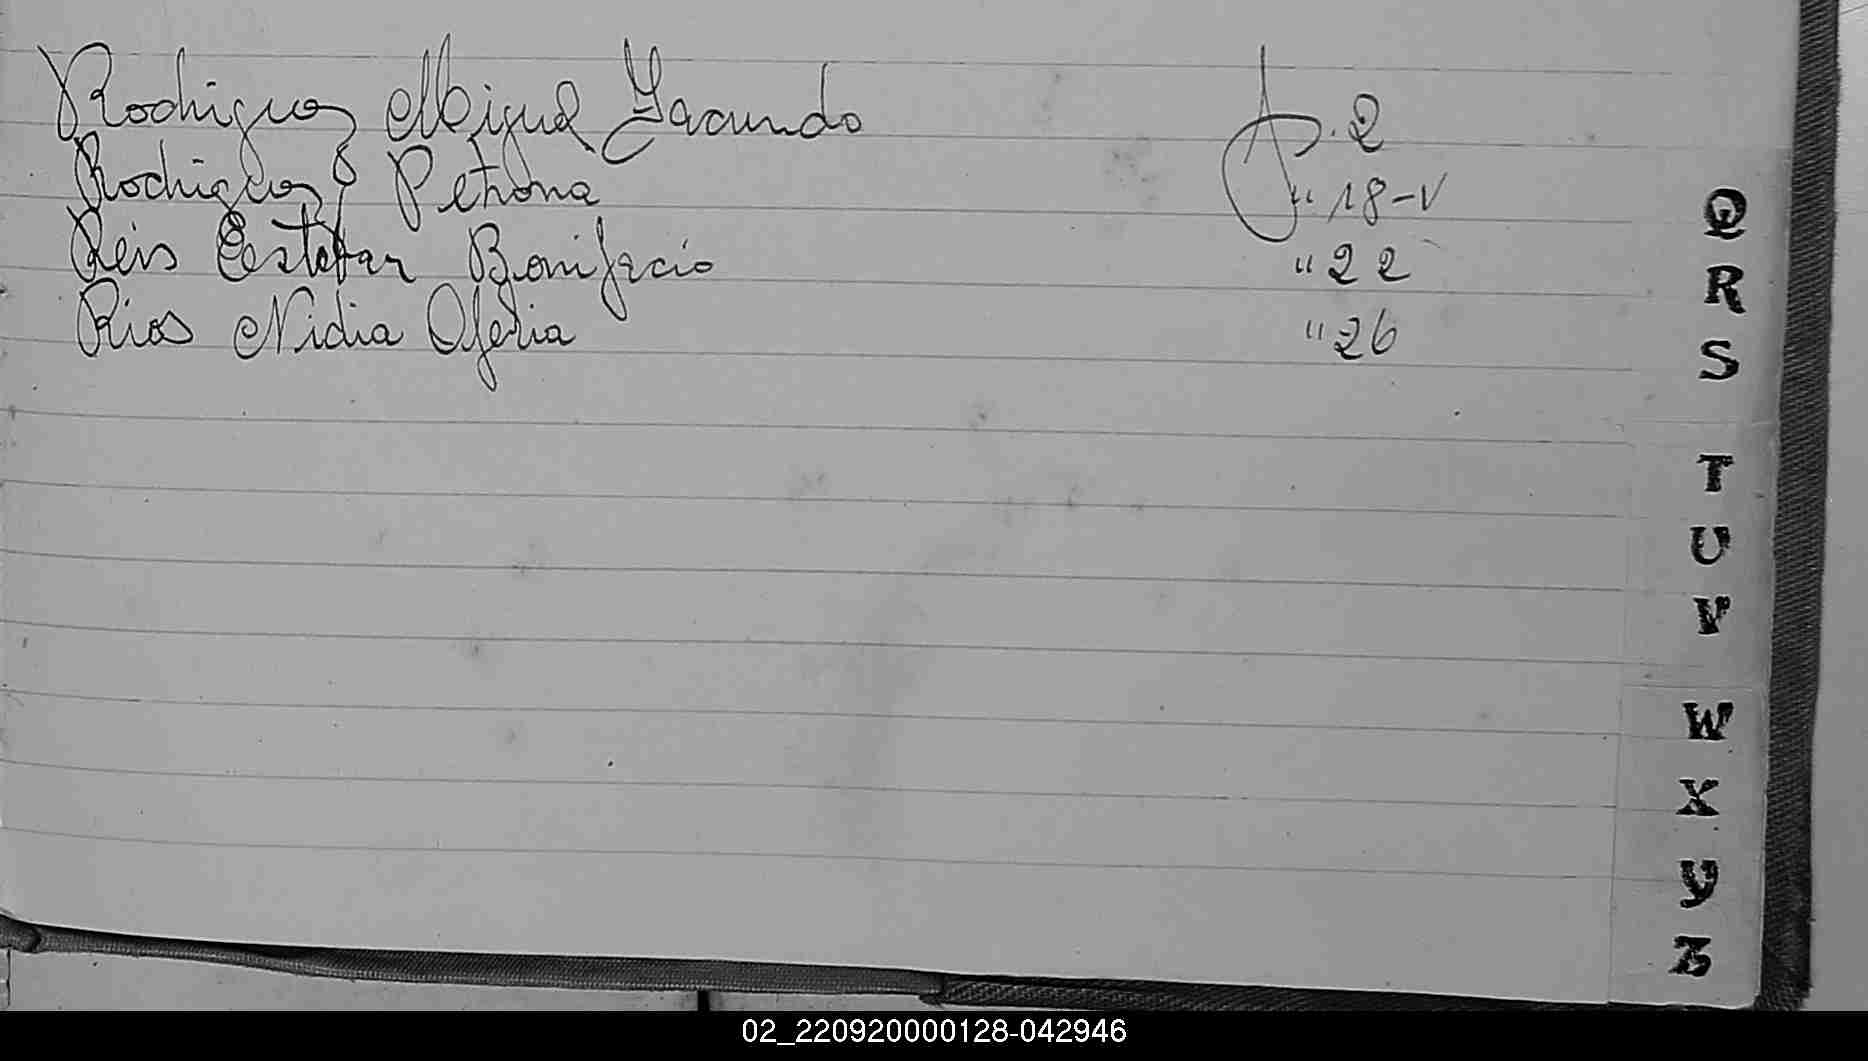 Rodriguez Miguel Facundo f. 2
Rodriguez Petrona " 18-V
Reis Esteban Bonifacio " 22
Rios Nidia Ofelia " 26
Q
R
S
T
U
V
W
X
Y
Z
02_220920000128-042946